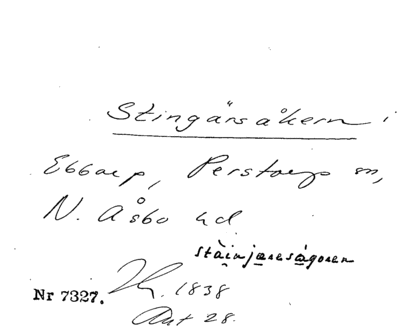 Stingärsåkern i
Ebbarp, Perstorp sn,
N. Åsbo hd
stàinjæresågoren
Nr 7327.
1838
Akt 28.